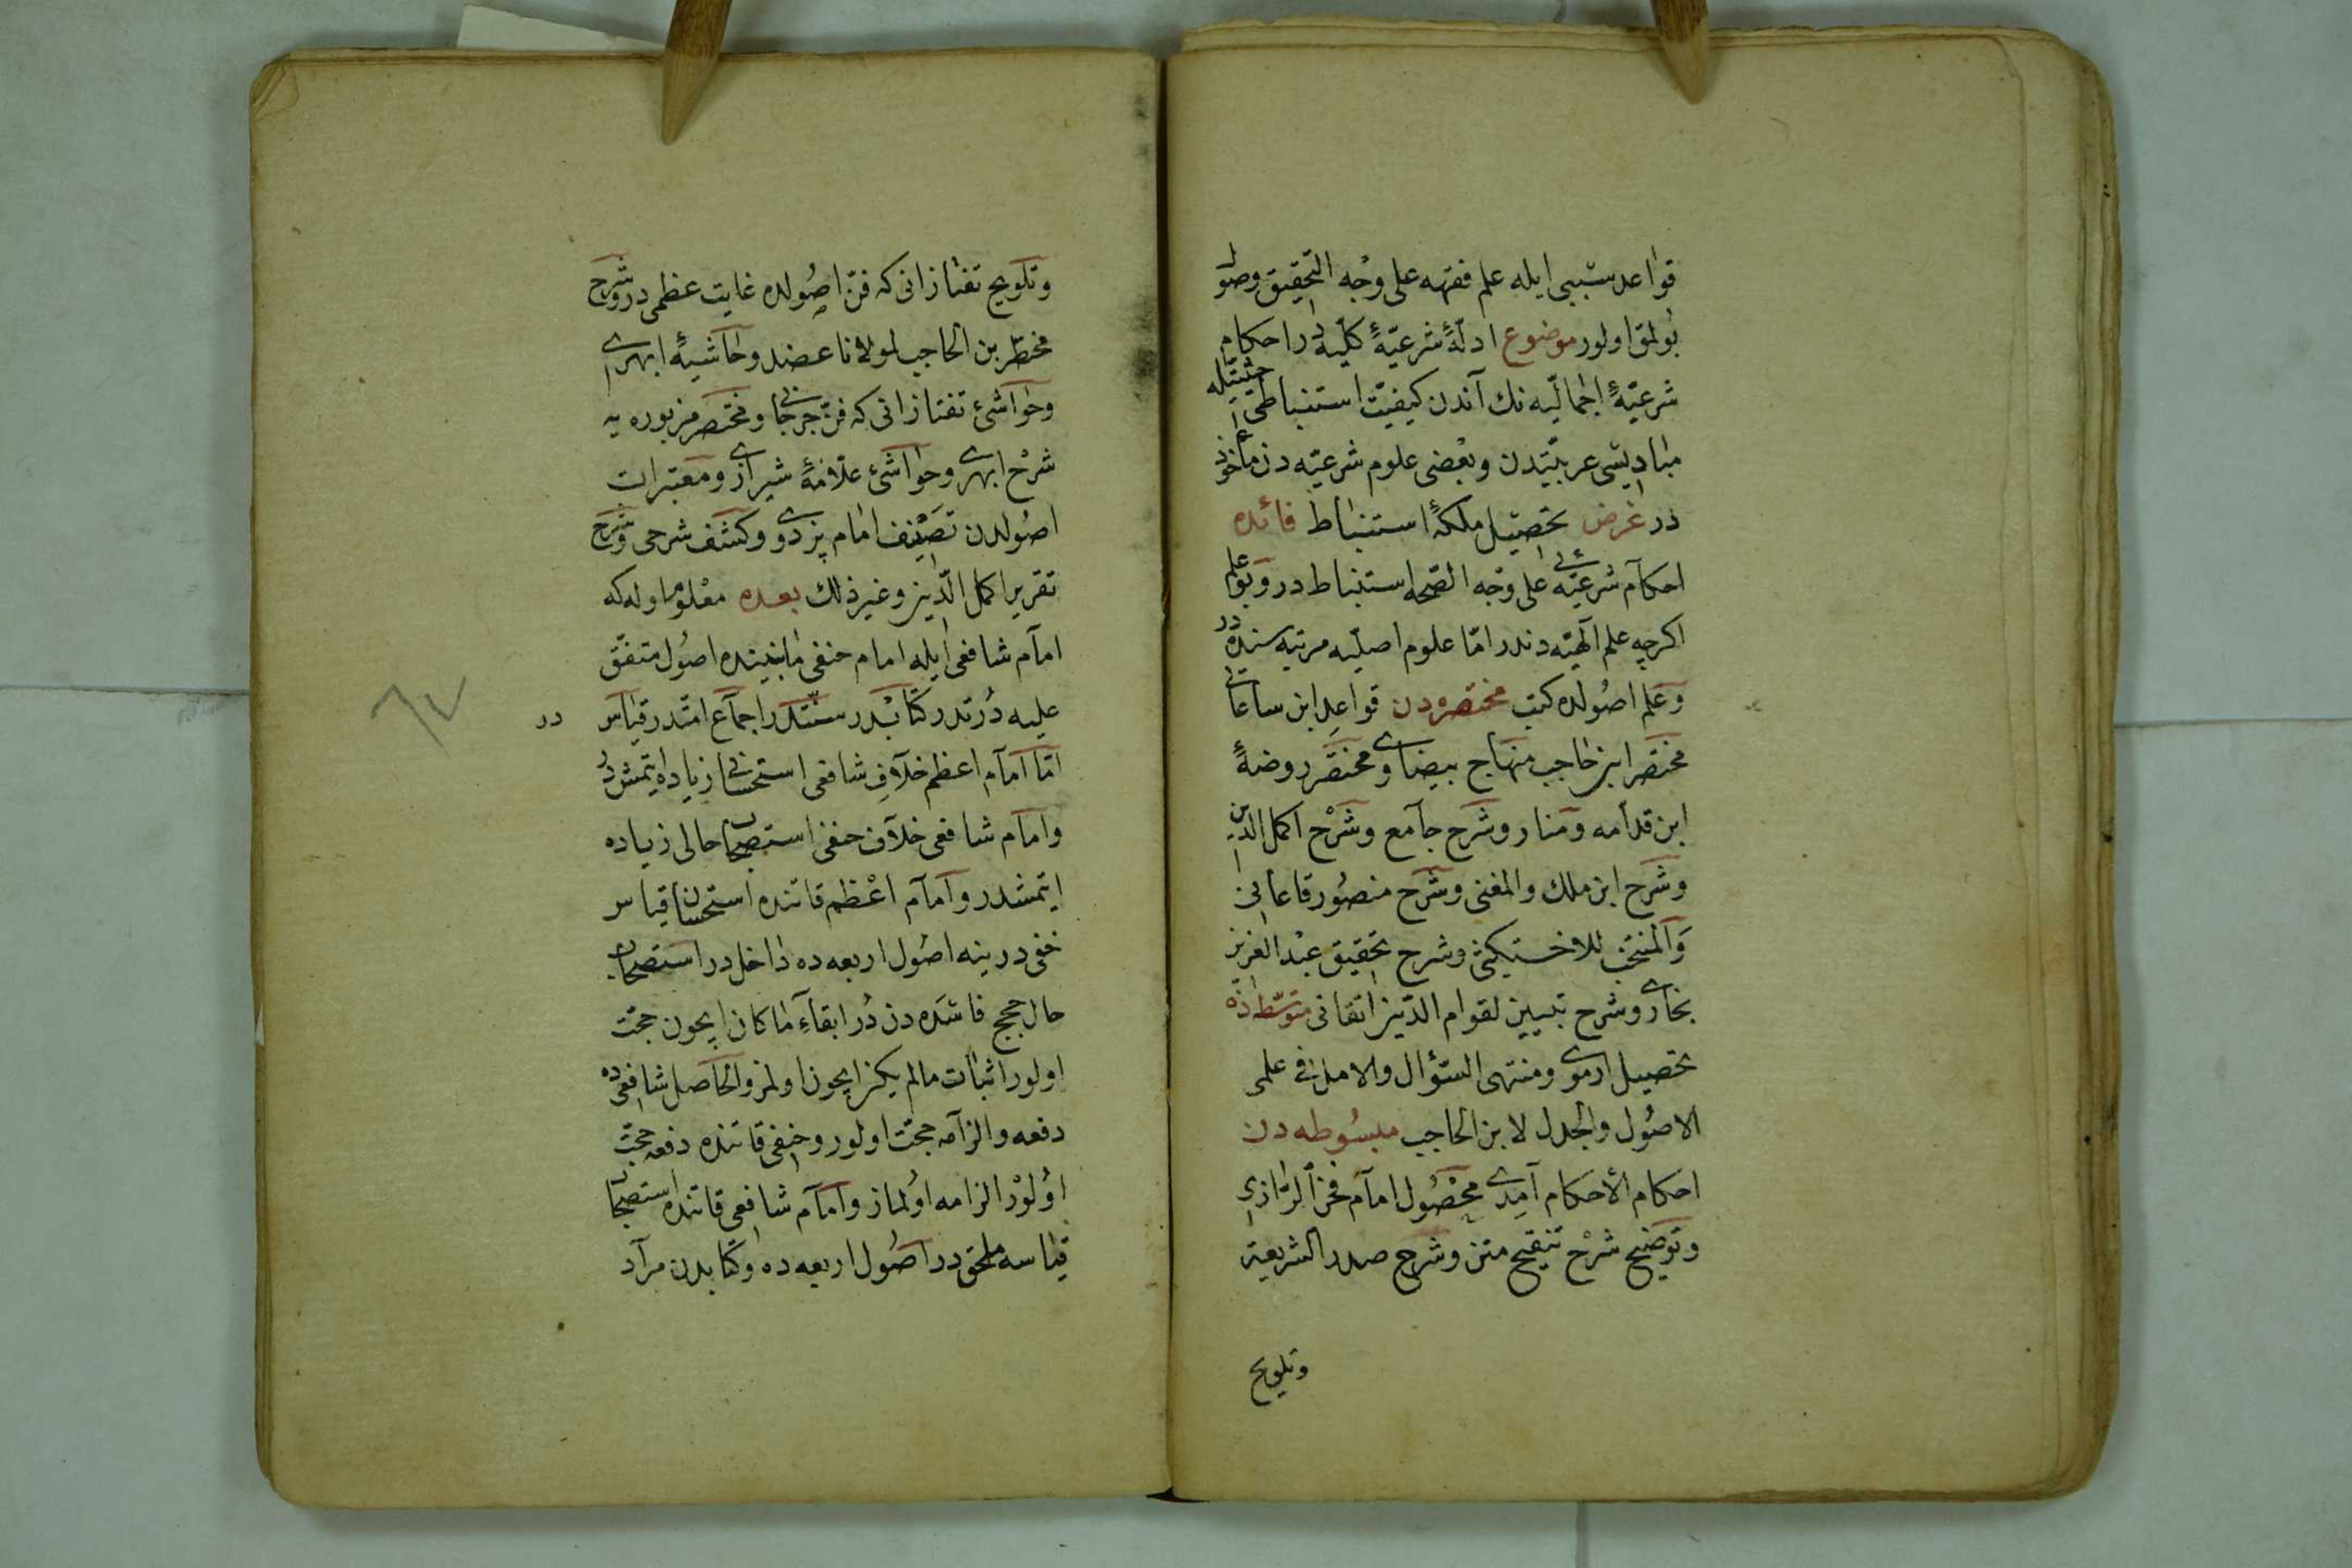 قواعد سببى ايله علم فقهه على وجه التحقيق وصول
بولمق اولور موضوع ادلّۀ شرعيّۀ كلّيه در احكام
شرعيّۀ اجماليّه نك آندن كيفيّت استنباطى حيثيّتيله
مباديسى عربيّتدن وبعضى علوم شرعيّه دن مأخوذ
در غرض تحصيل ملكۀ استنباط فائده
احكام شرعيّه ئى على وجه الصّحه استنباط در وبو علم
اكرچه علم آلهيّه دندر امّا علوم اصليّه مرتبه سنده در
وعلم اصولده كتب مختصره دن قواعد ابن ساعاتى
مختصر ابن حاجب منهاج بيضاوى ومختصر روضۀ
ابن قدامه ومنار وشرح جامع وشرح اكمل الدين
وشرح ابن ملك والمغنى وشرح منصور قاعانى
والمنتخب للاخستيكثى وشرح تحقيق عبد العزيز
بخارى وشرح تبيين لقوام الدّين اتقانى متوسّطه دن
تحصيل ارموى ومنتهى السّؤال والامل فى علمى
الاصول والجدل لابن الحاجب مبسوطه دن
احكام الاحكام آمدى محصول امام فخر الرّازى
وتوضيح شرح تنقيح متن وشرح صدر الشريعة
وتلويح
وتلويح تفتازانى كه فنّ اصولده غايت عظمى در وشرح
مختصر بن الحاجب لمولانا عضد وحاشيۀ ابهرى
وحواشئ تفتازانى كه فنّ جرجانى ومختصر مزبوره يه
شرح ابهرى وحواشئ علّامۀ شيرازى ومعتبرات
اصولدن تصنيف امام پزدوى وكشف شرحى وشرح
تقرير اكمل الدّين وغير ذلك بعده معلوم اوله كه
امام شافعى ايله امام حنفى مابيننده اصول متفق
عليه دُرتدر كتابدر سنّتدر اجماع امّتدر قياس در
امّا امام اعظم خلاف شافعى استحسانى زياده ايتمشدر
وامام شافعى خلاف حنفى استصحاب حالى زياده
ايتمشدر وامام اعظم قاتنده استحسان قياس
خفى در ينه اصول اربعه ده داخل در استصحاب
حال حجج فاسده دن دُر ابقاءِ ما كان ايچون حجّت
اولور اثبات مالم يكن ايچون اولمز والحاصل شافعى ده
دفعه والزامه حجّت اولور وحنفى قاتنده دفعه حجّت
اولور الزامه اولماز وامام شافعى قاتنده استصحاب
قياسه ملحق در اصول اربعه ده وكتابدن مراد
٦٧